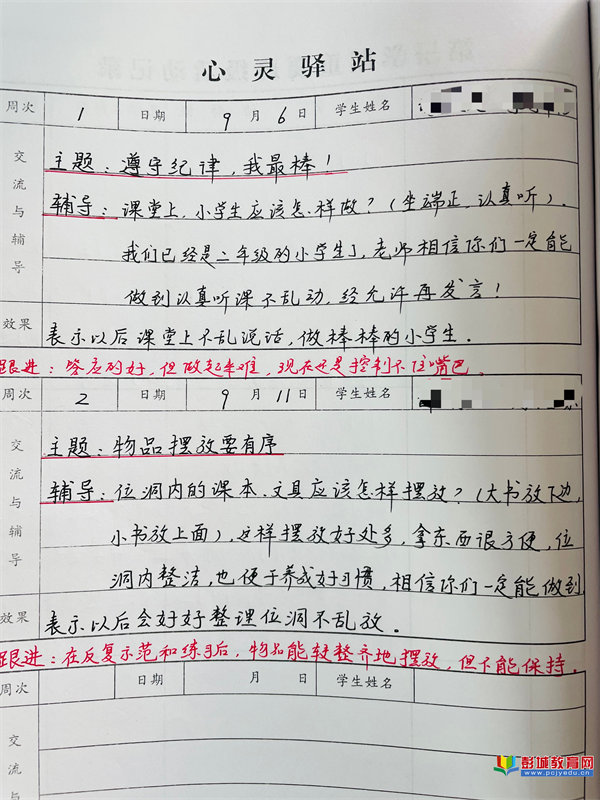 心灵驿站
周次 1 日期 9月6日 学生姓名
交流与辅导
主题：遵守纪律，我最棒！
辅导：课堂上，小学生应该怎样做？（坐端正，认真听）．
我们已经是二年级的小学生了，老师相信你们一定能
做到认真听课不乱动，经允许再发言！
效果 表示以后课堂上不乱说话，做棒棒的小学生．
跟进：答应的好，但做起来难，现在还是控制不住嘴巴．
周次 2 日期 9月11日 学生姓名
交流与辅导
主题：物品摆放要有序
辅导：位洞内的课本．文具应该怎样摆放？（大书放下边，
小书放上面），这样摆放好处多，拿东西很方便，位
洞内整洁，也便于养成好习惯，相信你们一定能做到
效果 表示以后会好好整理位洞不乱放．
跟进：在反复示范和练习后，物品能较整齐地摆放，但不能保持．
周次 日期 月 日 学生姓名
交流
彭城教育网
www.pcjyedu.com